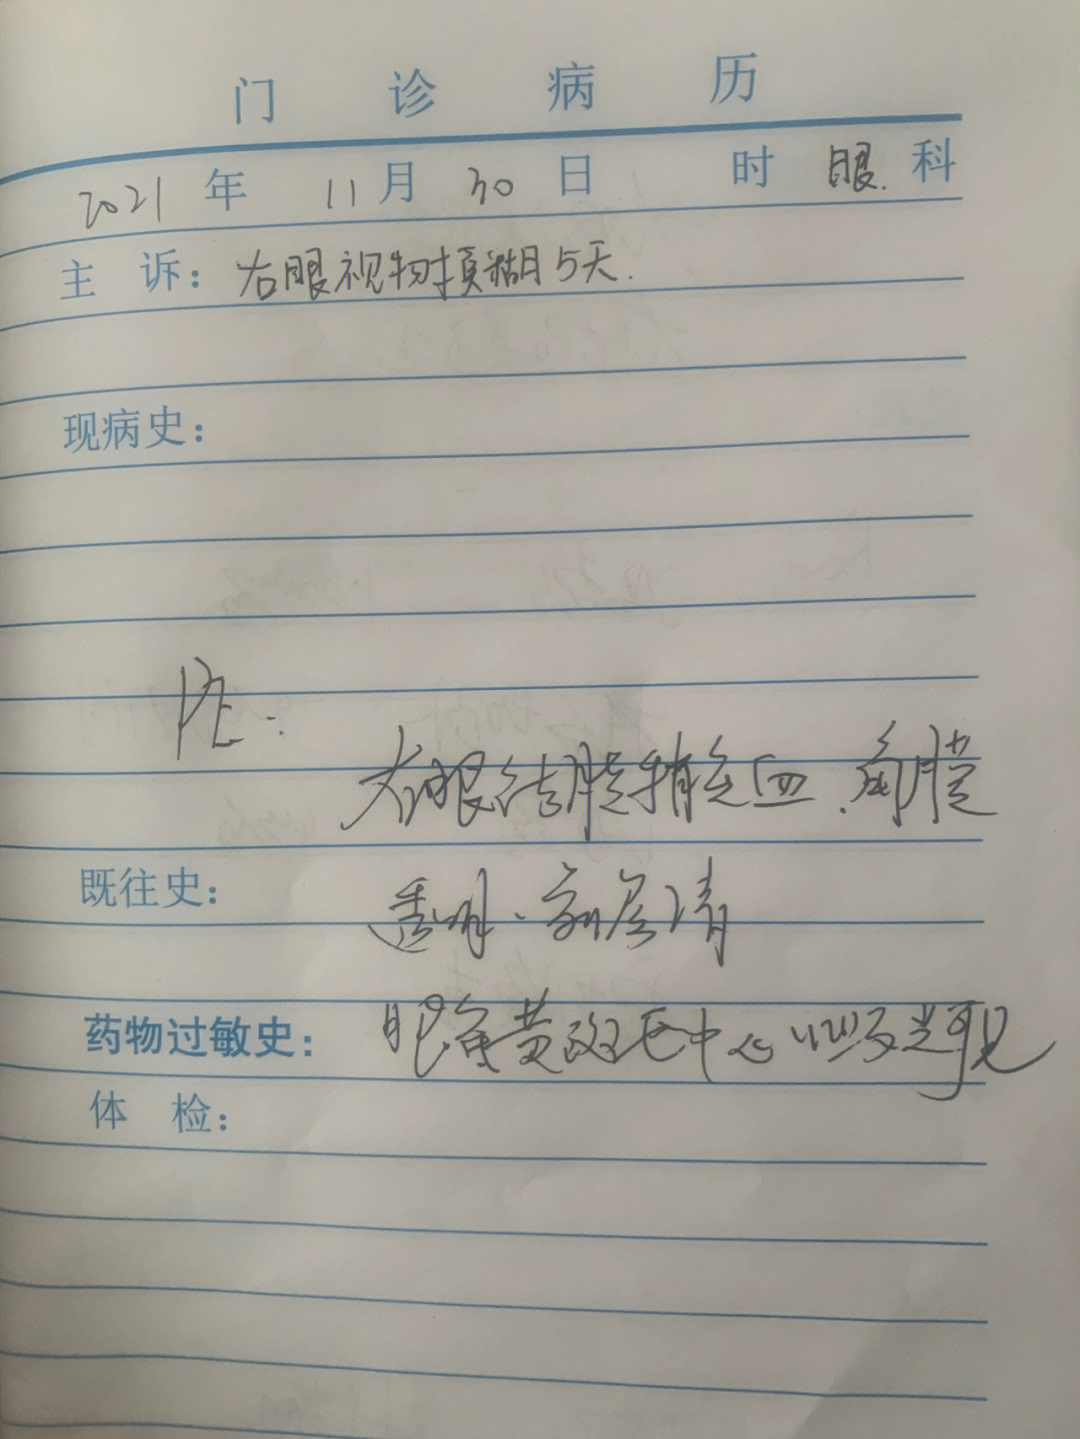 门 诊 病 历
2021 年 11 月 30 日 时 眼 科
主 诉： 右眼视物模糊5天.
现病史：
PE：
右眼结膜稍充血.角膜
透明.前房清
既往史：
药物过敏史： 眼角黄斑 中心
体 检：